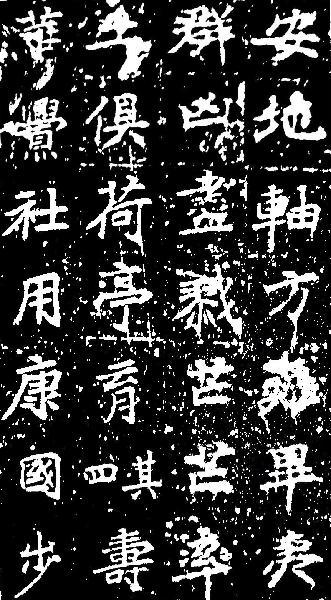 安地軸方畢夷
群凶盡戮芒芒率
土俱荷亭育其四壽
華社用康國步